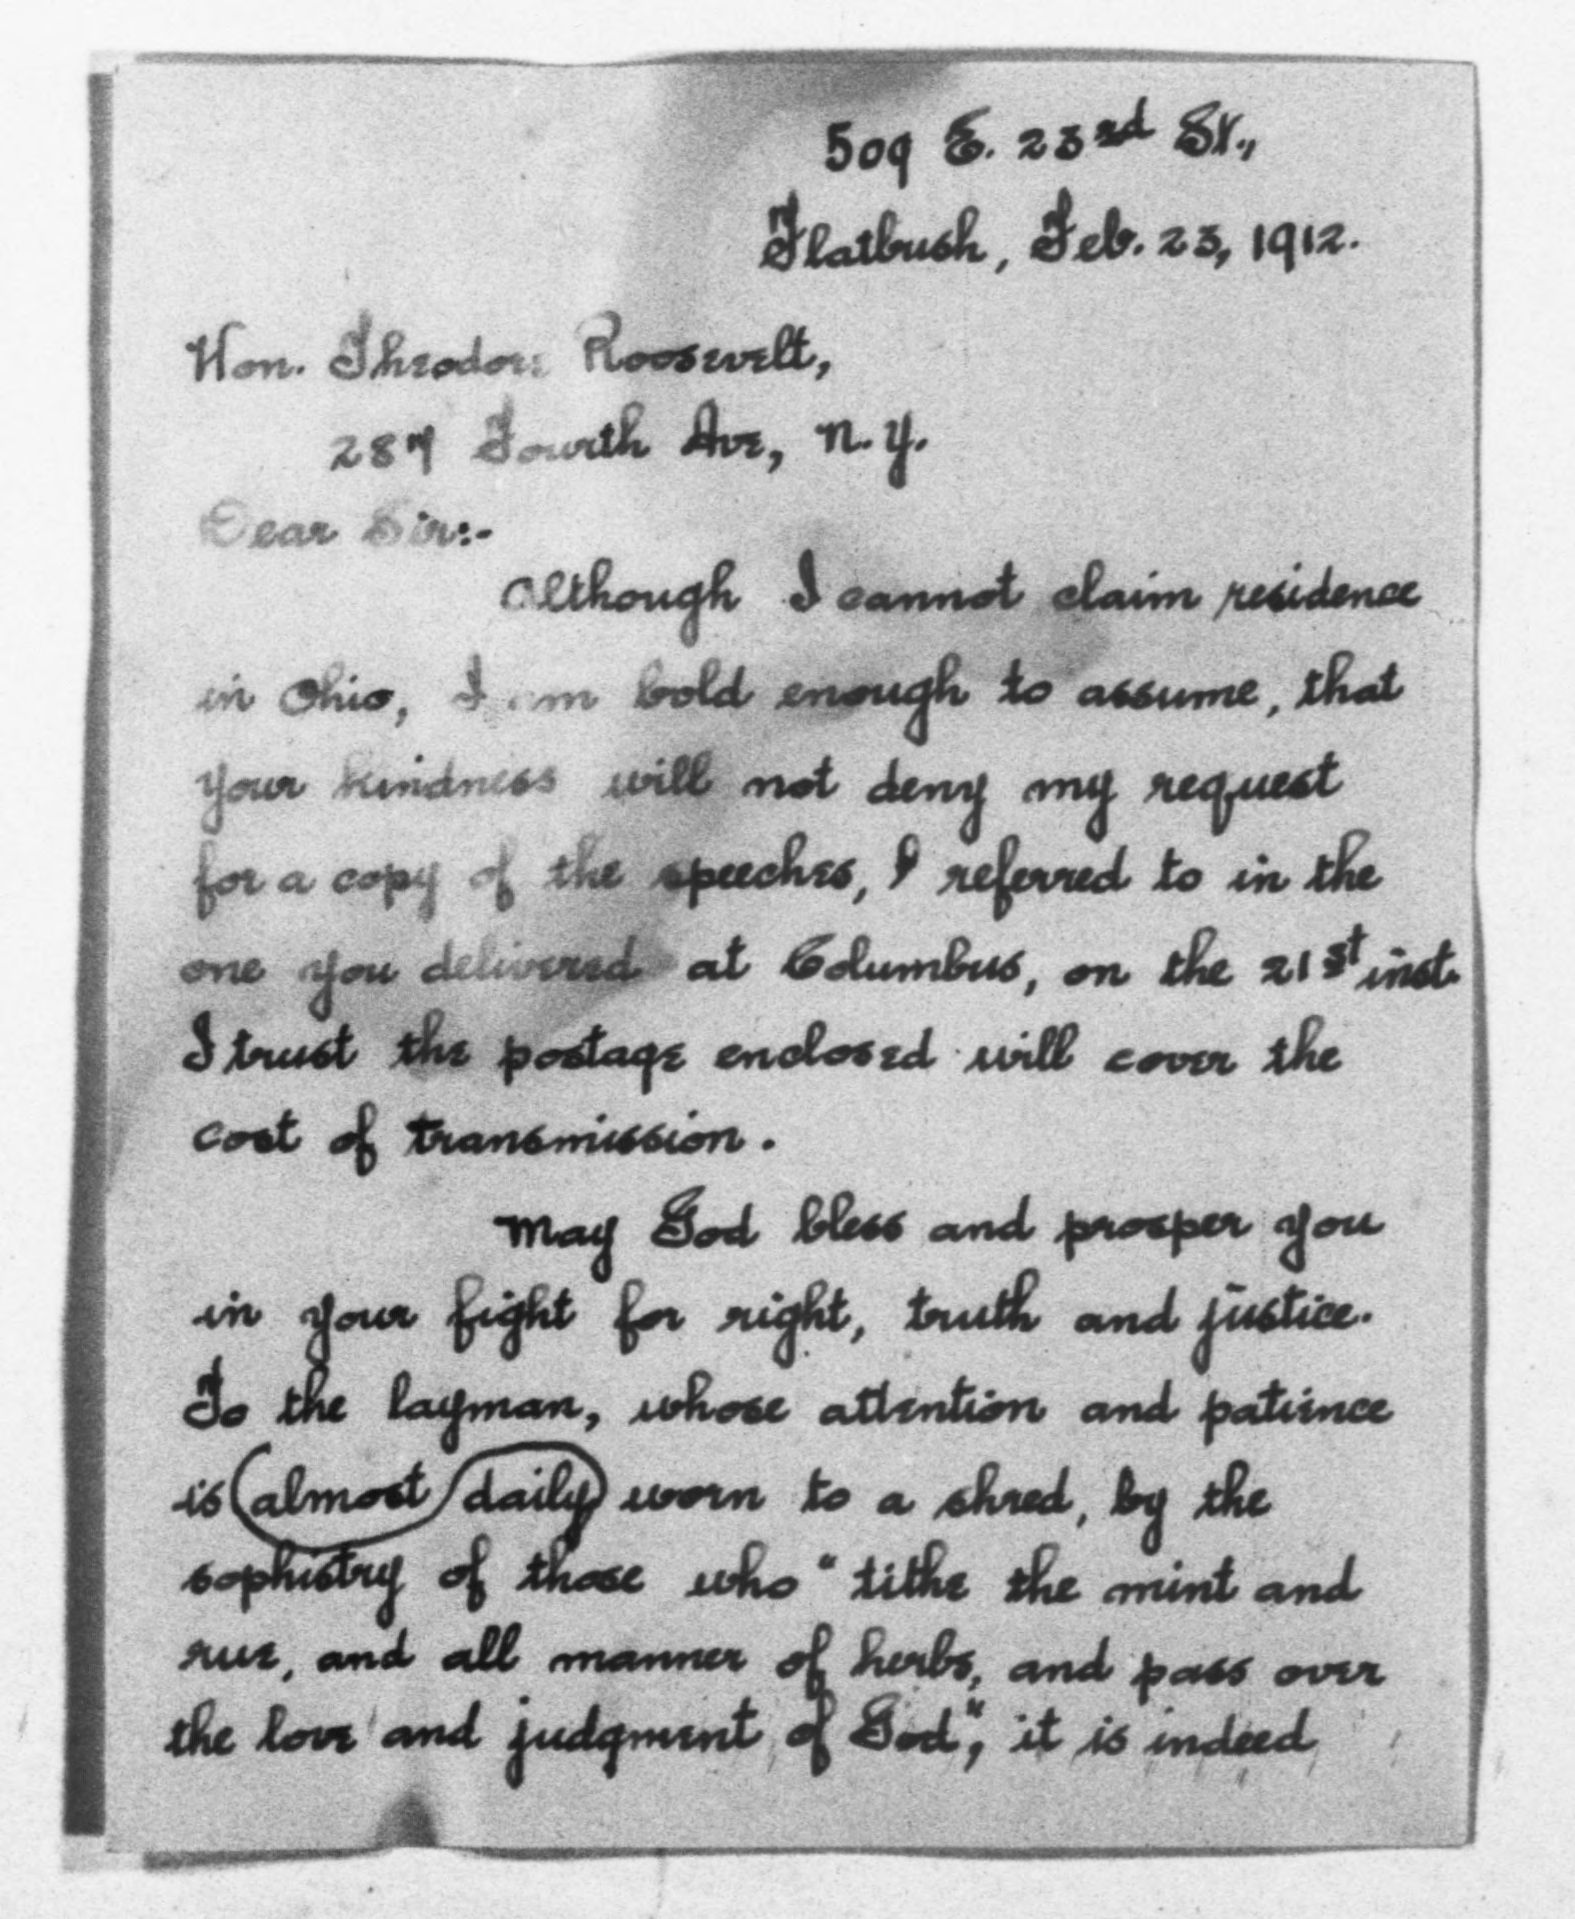 509 E. 23rd St.,
Flatbush, Feb. 23, 1912.
Hon. Theodore Roosevelt,
287 Fourth Ave, N.Y.
Dear Sir:-
Although I cannot claim residence
in Ohio, I am bold enough to assume, that
your kindness will not deny my request
for a copy of the speeches, I referred to in the
one you delivered at Columbus, on the 21st inst.
I trust the postage enclosed will cover the
cost of transmission.
May God bless and prosper you
in your fight for right, truth and justice.
To the layman, whose attention and patience
is almost daily worn to a shred, by the
sophistry of those who "tithe the mint and
rue, and all manner of herbs, and pass over
the love and judgment of God", it is indeed